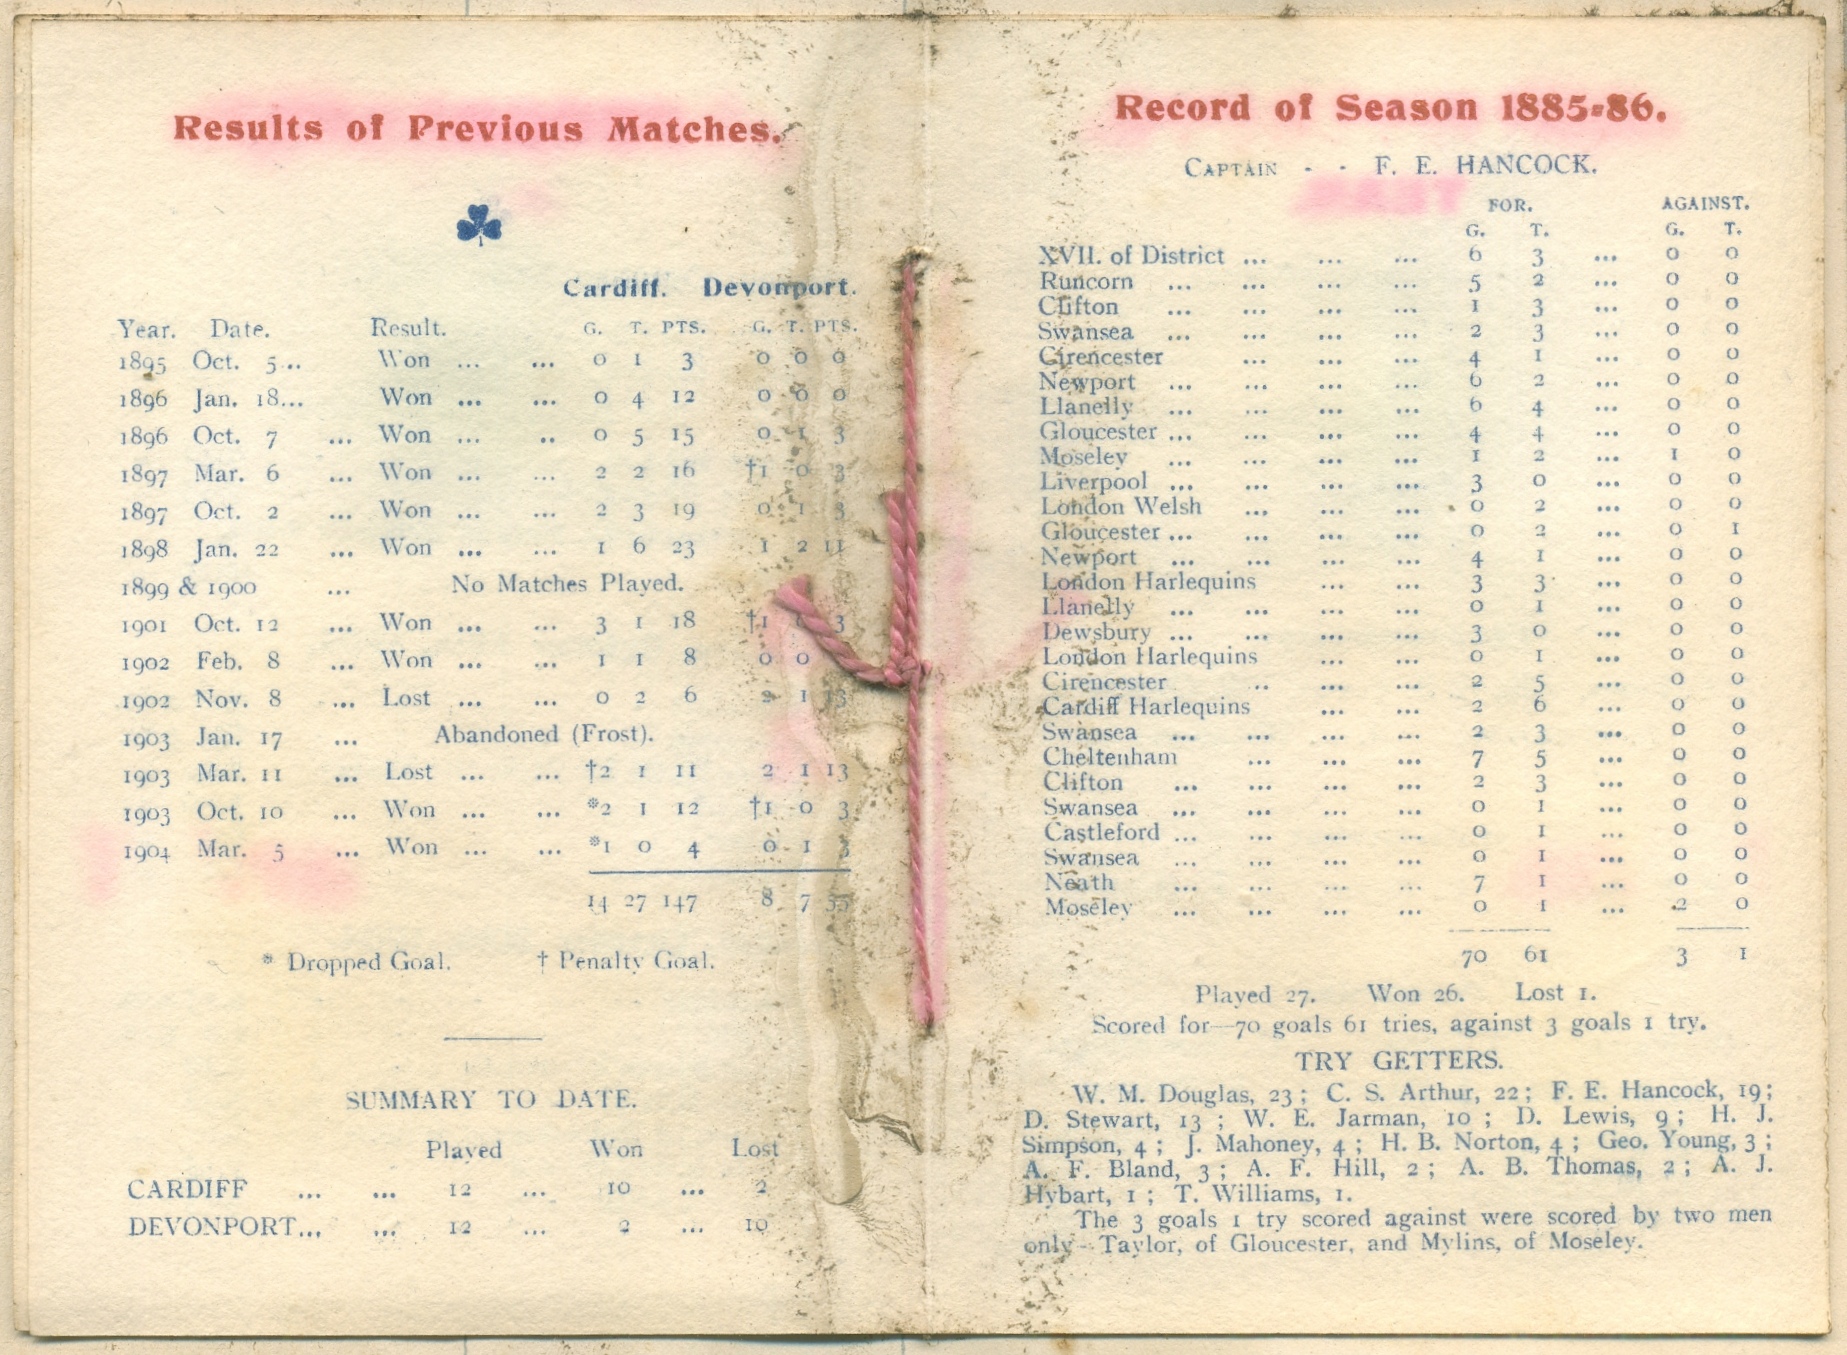 Results of Previous Matches.
Cardiff. Devonport.
Year. Date. Result. G. T. PTS. G. T. PTS.
1895 Oct. 5... Won ... ... 0 1 3 0 0 0
1896 Jan. 18... Won ... ... 0 4 12 0 0 0
1896 Oct. 7 ... Won ... .. 0 5 15 0 1 3
1897 Mar. 6 ... Won ... ... 2 2 16 †1 0 3
1897 Oct. 2 ... Won ... ... 2 3 19 0 1 3
1898 Jan. 22 ... Won ... ... 1 6 23 1 2 11
1899 & 1900 ... No Matches Played.
1901 Oct. 12 ... Won ... ... 3 1 18 †1 0 3
1902 Feb. 8 ... Won ... ... 1 1 8 0 0
1902 Nov. 8 ... Lost ... ... 0 2 6 2 1 13
1903 Jan. 17 ... Abandoned (Frost).
1903 Mar. 11 ... Lost ... ... †2 1 11 2 1 13
1903 Oct. 10 ... Won ... ... *2 1 12 †1 0 3
1904 Mar. 5 ... Won ... ... *1 0 4 0 1 3
14 27 147 8 7 55
* Dropped Goal. † Penalty Goal.
SUMMARY TO DATE.
Played Won Lost
CARDIFF ... ... 12 ... 10 ... 2
DEVONPORT... ... 12 ... 2 ... 10
Record of Season 1885-86.
CAPTAIN - - F. E. HANCOCK.
FOR. AGAINST.
G. T. G. T.
XVII. of District ... ... ... 6 3 ... 0 0
Runcorn ... ... ... ... 5 2 ... 0 0
Clifton ... ... ... ... 1 3 ... 0 0
Swansea ... ... ... ... 2 3 ... 0 0
Cirencester ... ... ... 4 1 ... 0 0
Newport ... ... ... ... 6 2 ... 0 0
Llanelly ... ... ... ... 6 4 ... 0 0
Gloucester ... ... ... ... 4 4 ... 0 0
Moseley ... ... ... ... 1 2 ... 1 0
Liverpool ... ... ... ... 3 0 ... 0 0
London Welsh ... ... ... 0 2 ... 0 0
Gloucester ... ... ... ... 0 2 ... 0 1
Newport ... ... ... ... 4 1 ... 0 0
London Harlequins ... ... 3 3 ... 0 0
Llanelly ... ... ... ... 0 1 ... 0 0
Dewsbury ... ... ... ... 3 0 ... 0 0
London Harlequins ... ... 0 1 ... 0 0
Cirencester .. ... ... 2 5 ... 0 0
Cardiff Harlequins ... ... 2 6 ... 0 0
Swansea ... ... ... ... 2 3 ... 0 0
Cheltenham ... ... ... 7 5 ... 0 0
Clifton ... ... ... ... 2 3 ... 0 0
Swansea ... ... ... ... 0 1 ... 0 0
Castleford ... ... ... ... 0 1 ... 0 0
Swansea ... ... ... ... 0 1 ... 0 0
Neath ... ... ... ... 7 1 ... 0 0
Moseley ... ... ... ... 0 1 ... 2 0
70 61 3 1
Played 27. Won 26. Lost 1.
Scored for—70 goals 61 tries, against 3 goals 1 try.
TRY GETTERS.
W. M. Douglas, 23; C. S. Arthur, 22; F. E. Hancock, 19;
D. Stewart, 13; W. E. Jarman, 10; D. Lewis, 9; H. J.
Simpson, 4; J. Mahoney, 4; H. B. Norton, 4; Geo. Young, 3;
A. F. Bland, 3; A. F. Hill, 2; A. B. Thomas, 2; A. J.
Hybart, 1; T. Williams, 1.
The 3 goals 1 try scored against were scored by two men
only—Taylor, of Gloucester, and Mylins, of Moseley.